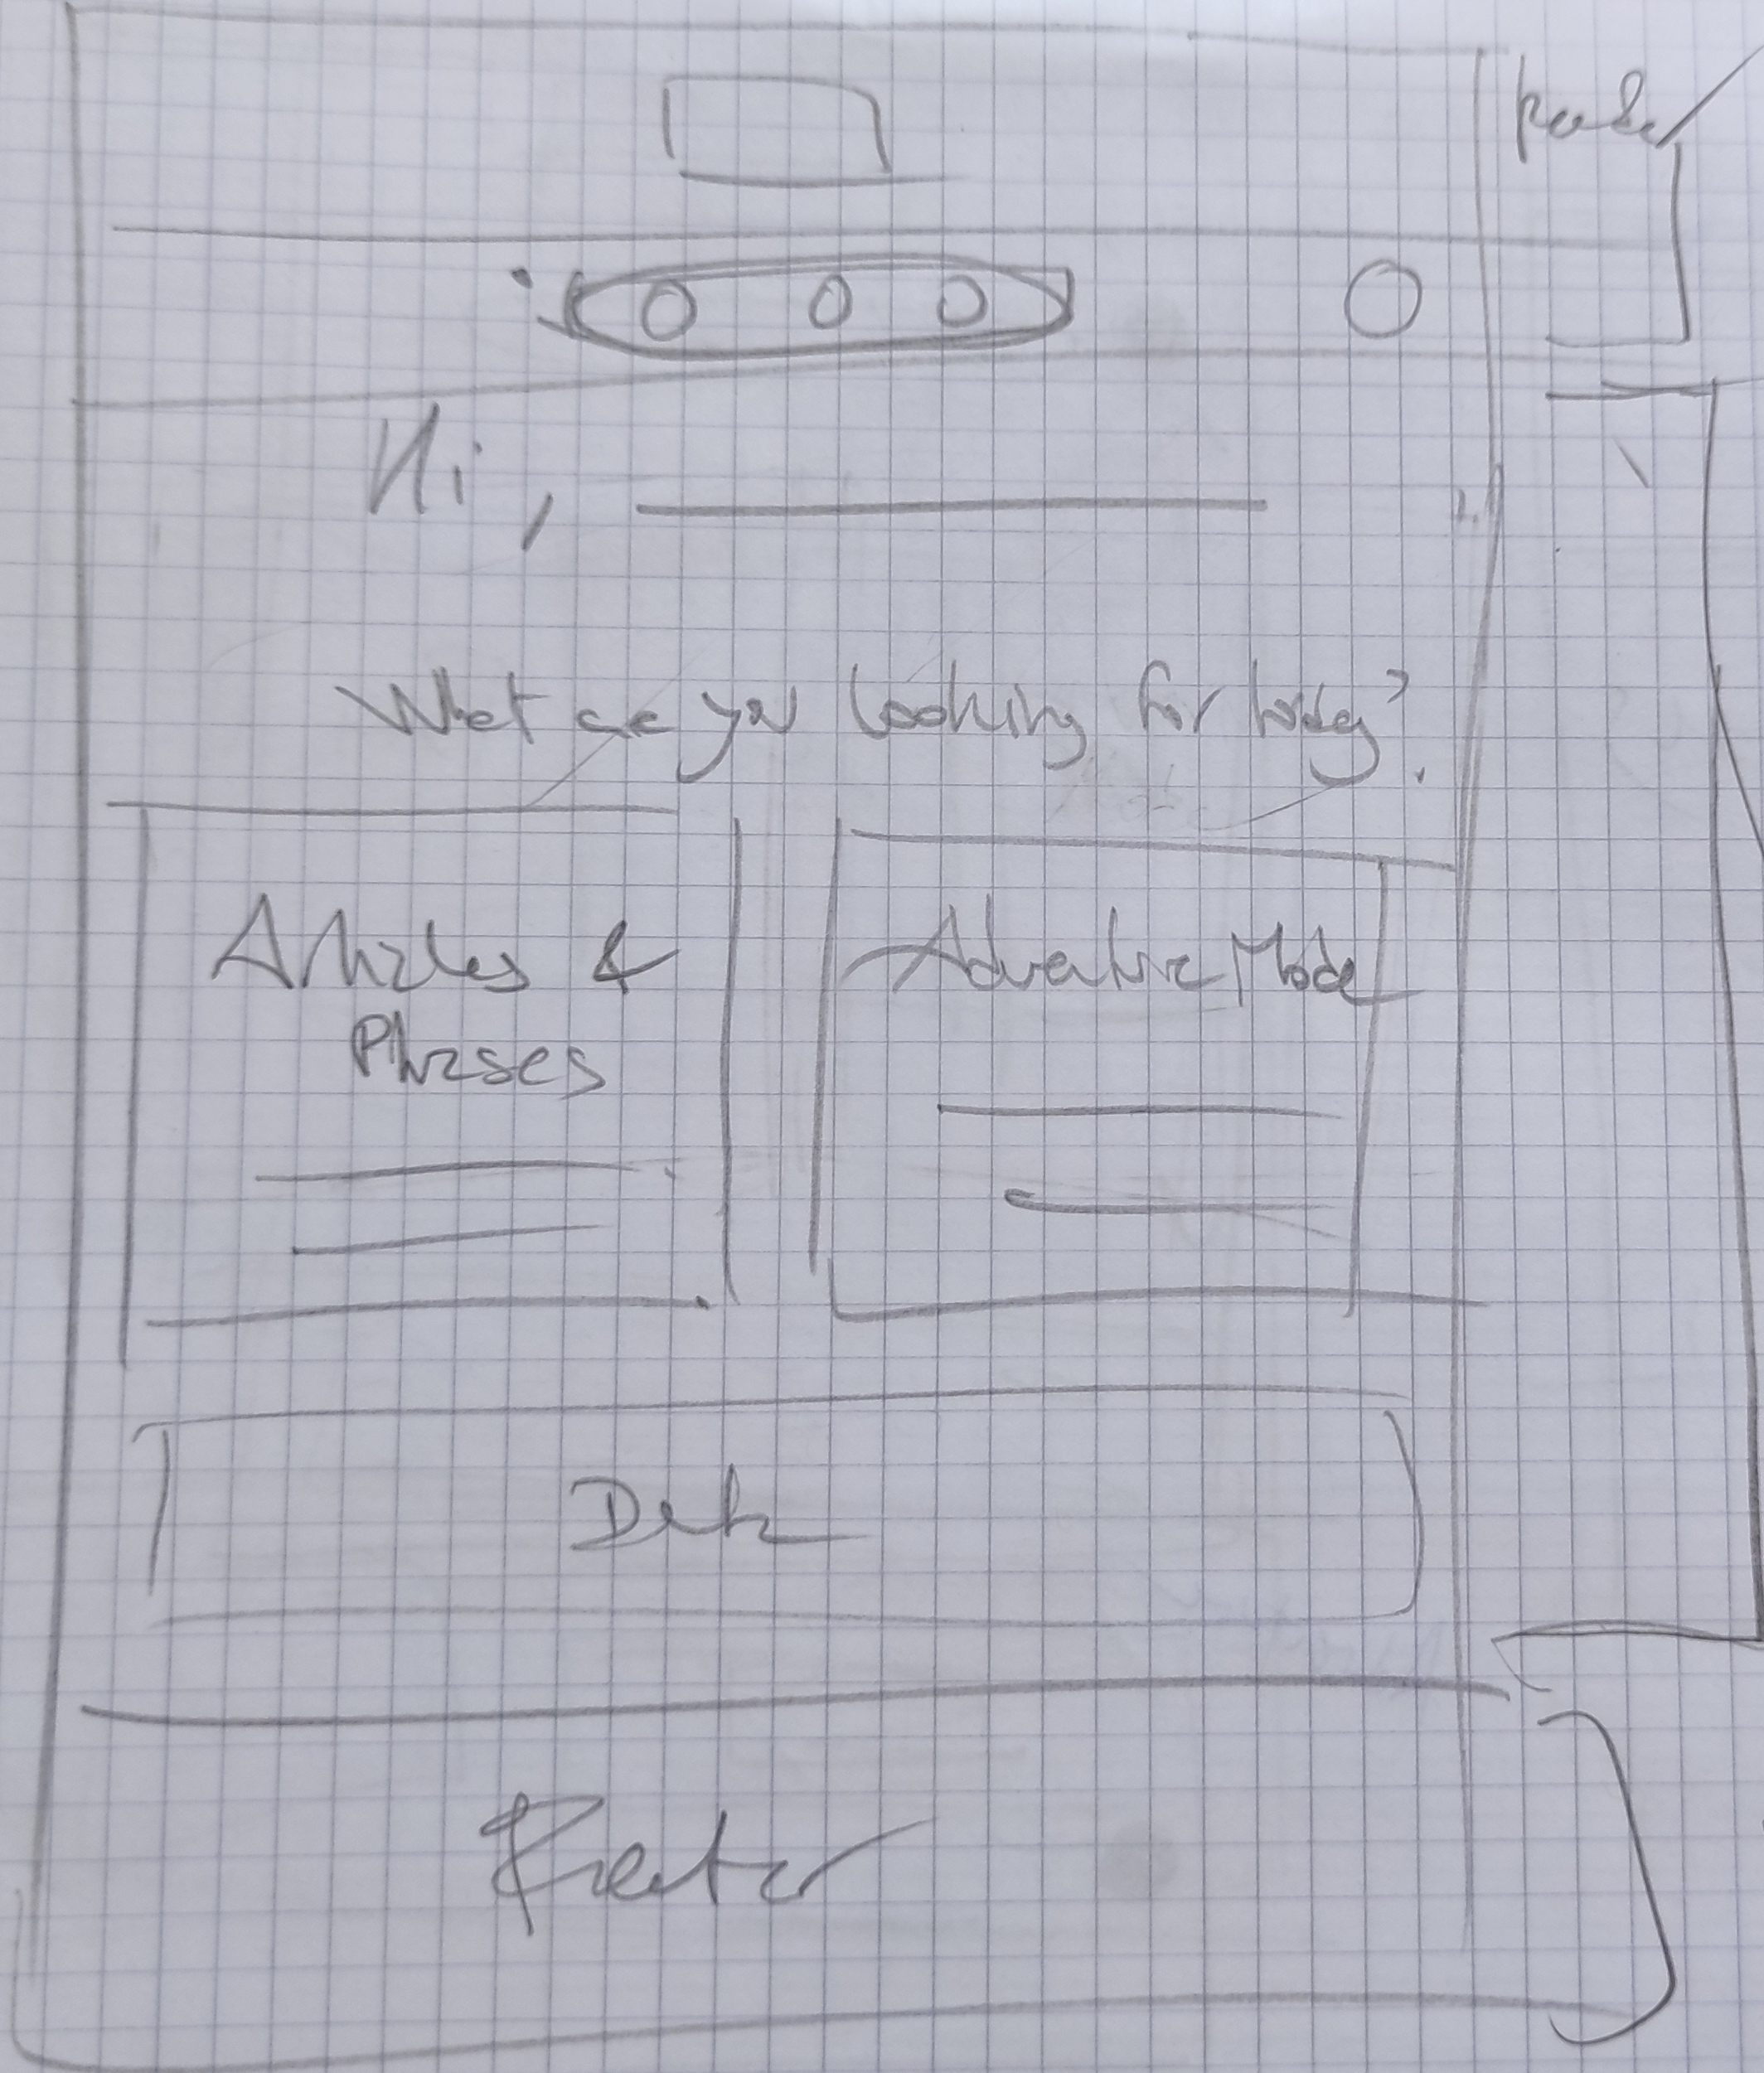 Hi,
What are you looking for today?
Articles &
Phrases
Adventure Mode
Footer